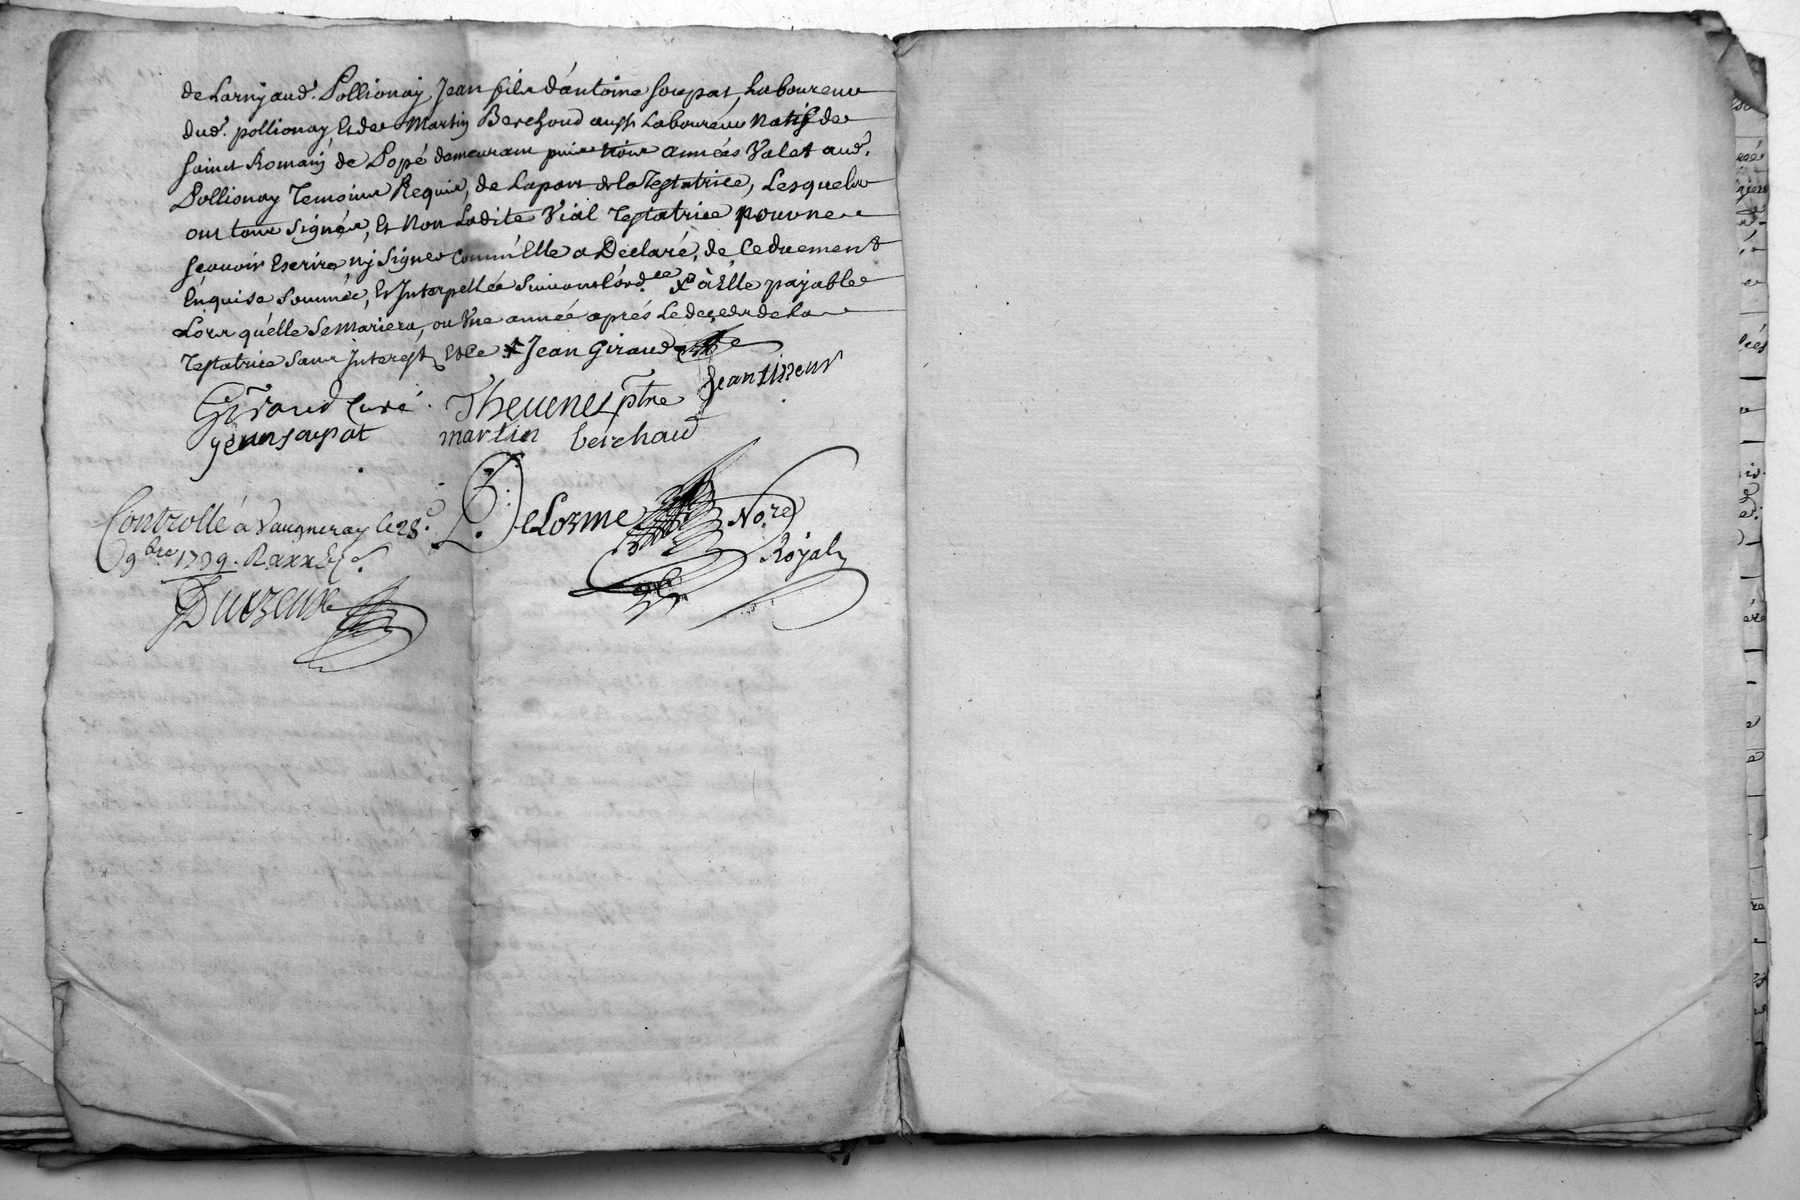 de Larny aud. Pollionay, Jean fils d'antoine Soupat, Laboureur
dud. pollionay Et de Martin Berchoud aussi Laboureur Natif de
saint Romain de Popé demeurant puis trois années Valet aud.
Pollionay Temoins Requis, de Lapart de la Testatrice, Lesquels
ont tous signés, Et Non Ladite Vial Testatrice pour ne
sçauoir Escrire, ny signer comm'Elle a Declaré, de Ce duement
Enquise sommée, Et Interpellée suivant l'ord.ce X à Elle payable
Lors qu'elle se mariera, ou Vne année aprés Le deçeds de La
Testatrice sans Interest Jean Giraud
Giraud Curé Thevenet ptre Jean tisseur
jean soupat martin berchaud
Controllé à Vaugneray le 28.
9bre 1739.
DeLorme No.re
Royal